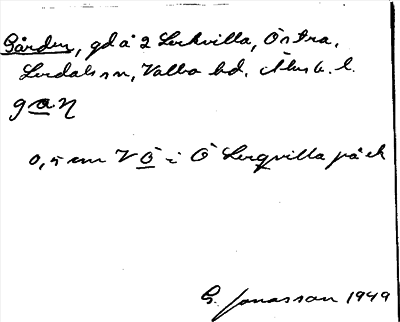 Gården, gd å 2 Lerkvilla, Östra,
Lerdals sn, Valbo hd. Älvsb. l.
gaɳ
0,5 cm V Ö i Ö Lerqvilla på ek
G. Jonasson 1949